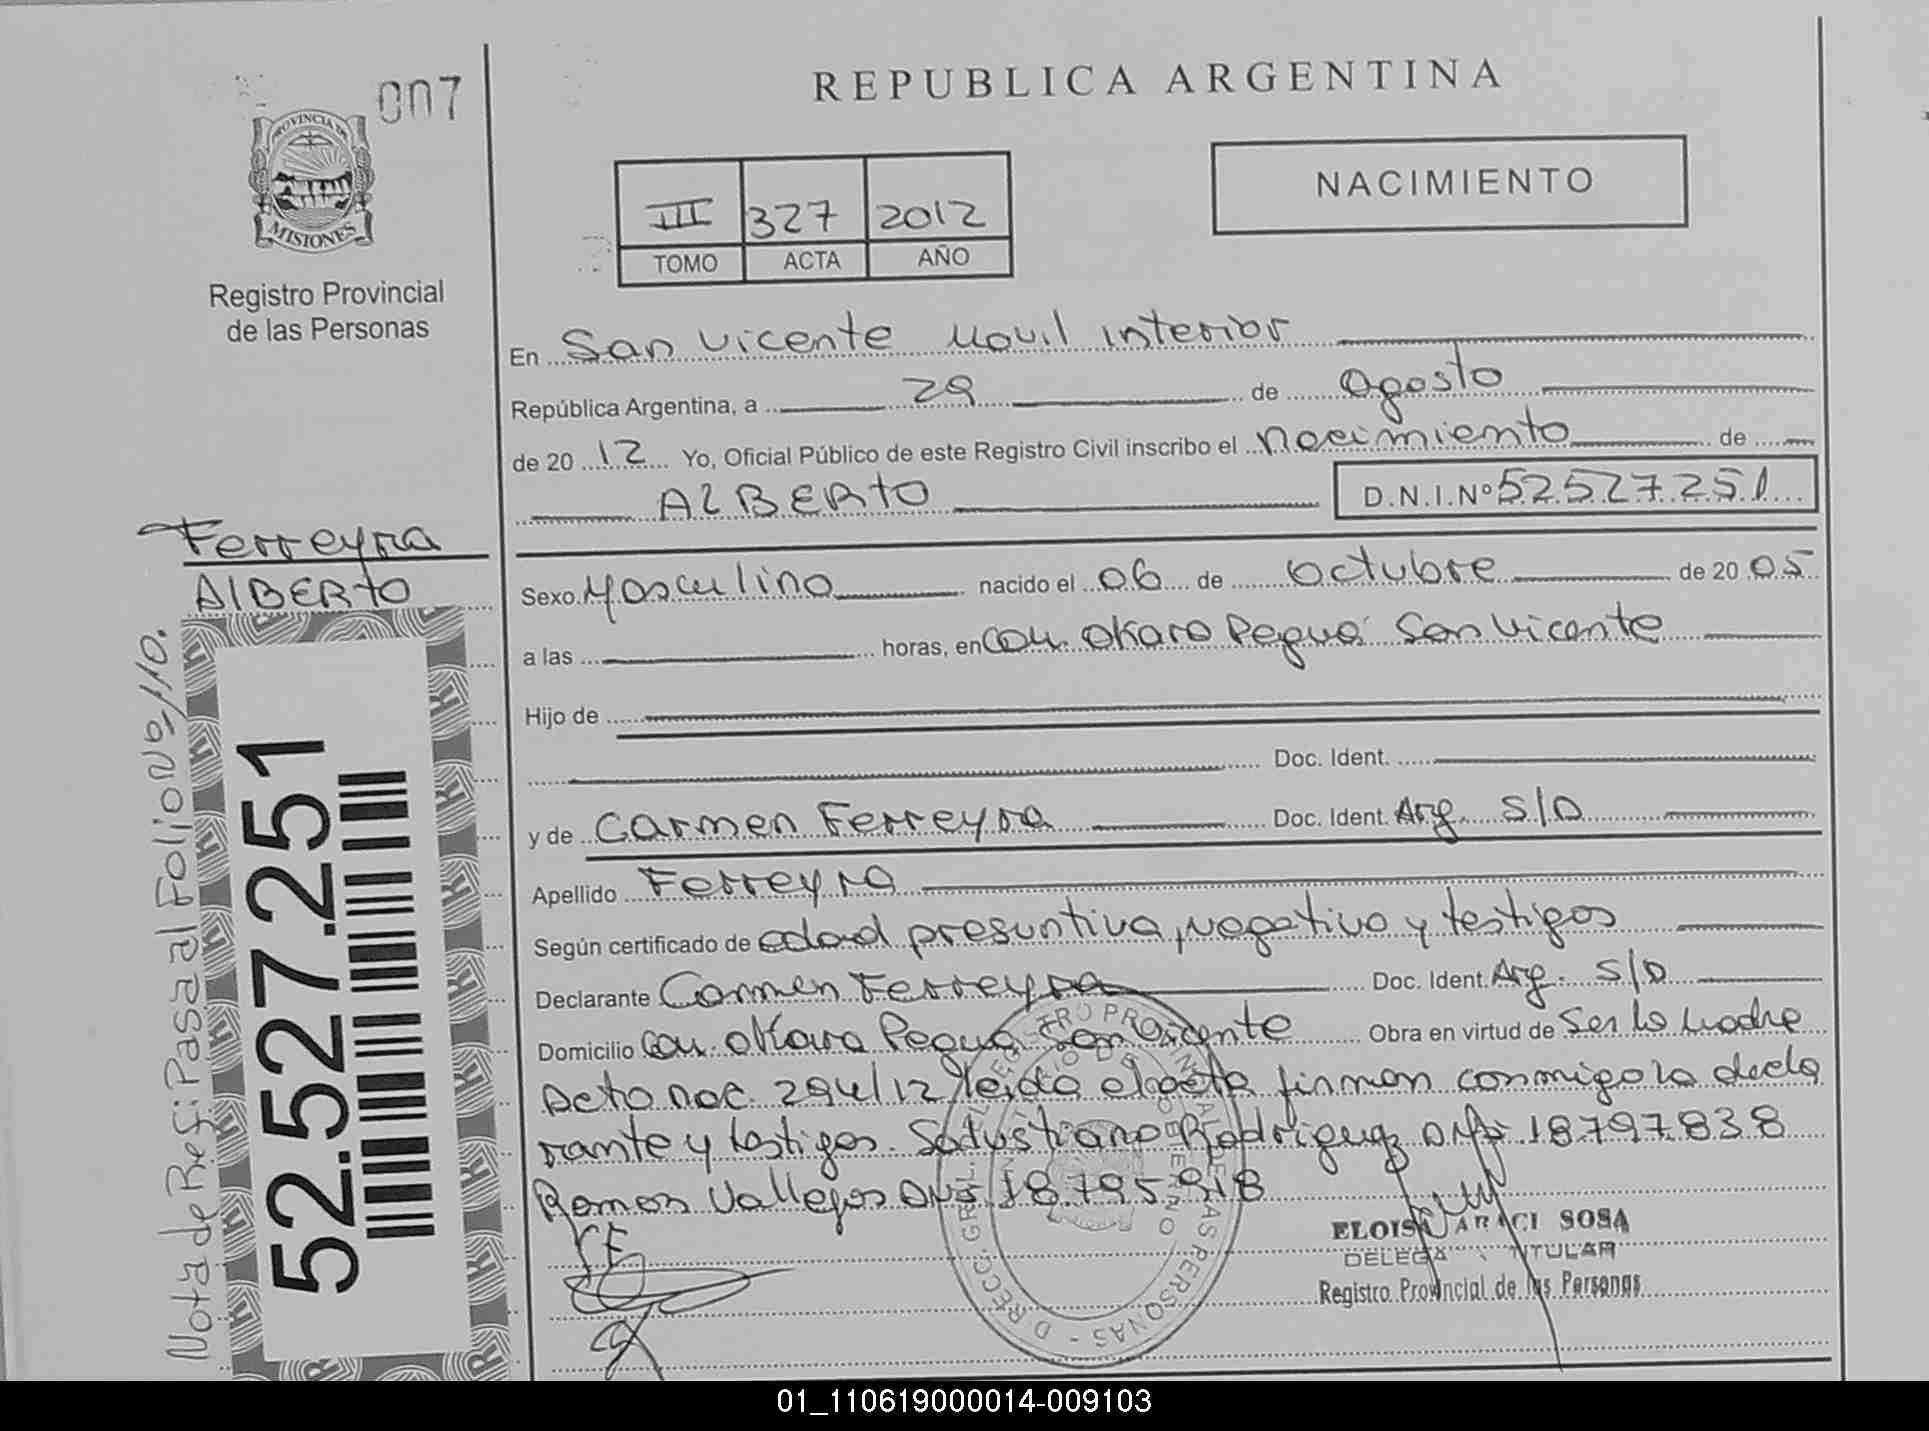 007
REPUBLICA ARGENTINA
PROVINCIA DE
MISIONES
Registro Provincial
de las Personas
NACIMIENTO
III 327 2012
TOMO ACTA AÑO
En San Vicente Movil interior
República Argentina, a 29 de agosto
de 20 12 Yo, Oficial Público de este Registro Civil inscribo el nacimiento de
ALBERTO D.N.I.Nº 52527251
Ferreyra
ALBERTO
Sexo Masculino nacido el 06 de octubre de 20 05
a las horas, en Com. Okara Pegua San Vicente
Hijo de
Doc. Ident.
y de Carmen Ferreyra Doc. Ident. Arg. S/D
Apellido Ferreyra
Según certificado de edad presuntiva, negativo y testigos
Declarante Carmen Ferreyra Doc. Ident. Arg. S/D
Domicilio Com. Okara Pegua San Vicente Obra en virtud de Ser la madre
acta nac. 294/12 leida el acta firman conmigo la decla
rante y testigos. Satustiano Rodriguez DNI 18.797.838
Ramon Vallejos DNI 18.795.918
ELOISA ARACI SOSA
DELEGADA TITULAR
Registro Provincial de las Personas
Nota de Ref: Pasa al Folio Nº 110.
52.527.251
01_110619000014-009103